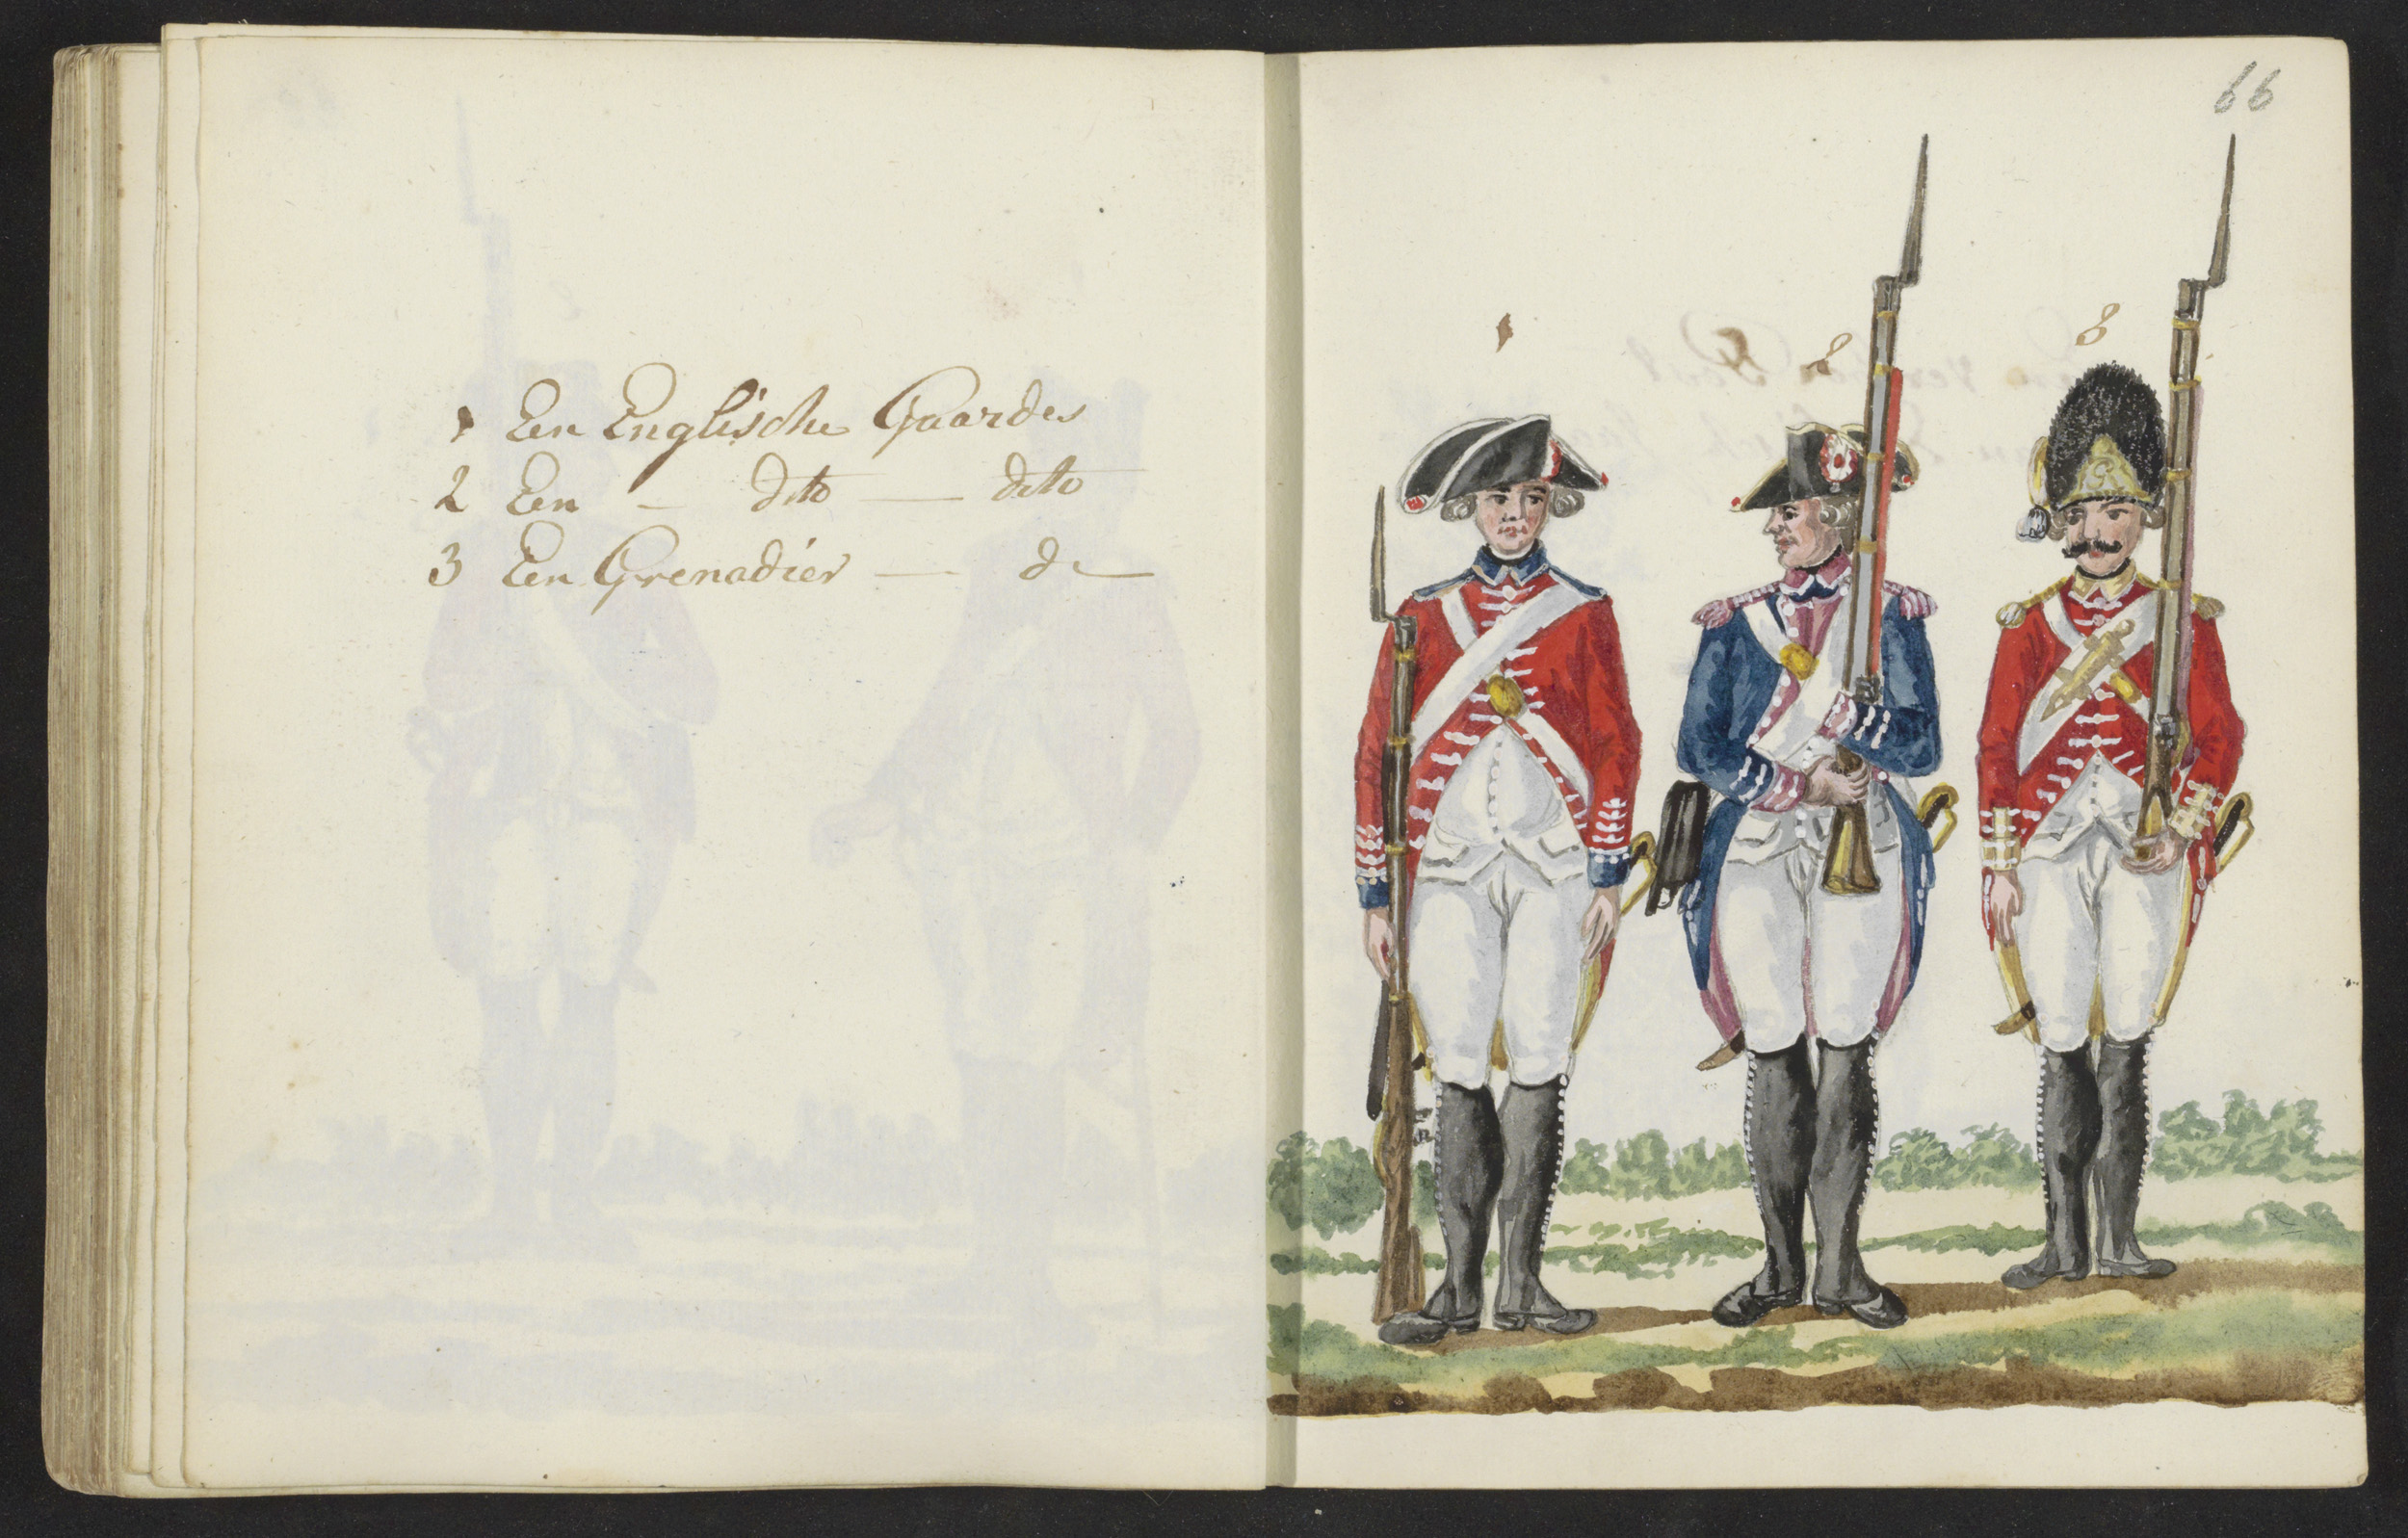 1 Een Englische Guardes
2 Een - dito - dito
3 Een Grenadier - do
66
1 2 3
G R